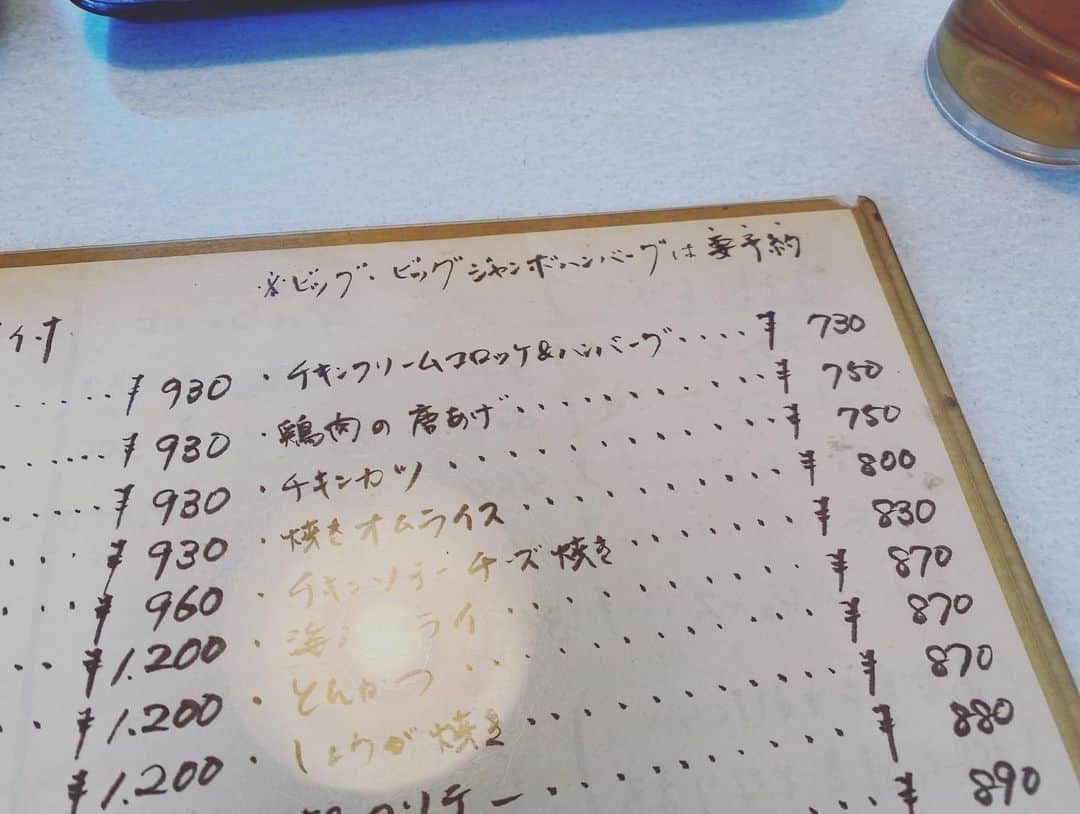 付
¥930
¥930
¥930
¥930
¥960
¥1.200
¥1.200
¥1.200
※ビッグ・ビッグジャンボハンバーグは要予約
・チキンクリームコロッケ&ハンバーグ....¥730
・鶏肉の唐あげ........¥750
・チキンカツ............¥750
・焼きオムライス.........¥800
・チキンソテーチーズ焼き.......¥830
・海老フライ............¥870
・とんかつ..............¥870
・しょうが焼き...........¥870
ソテー..........¥880
¥890